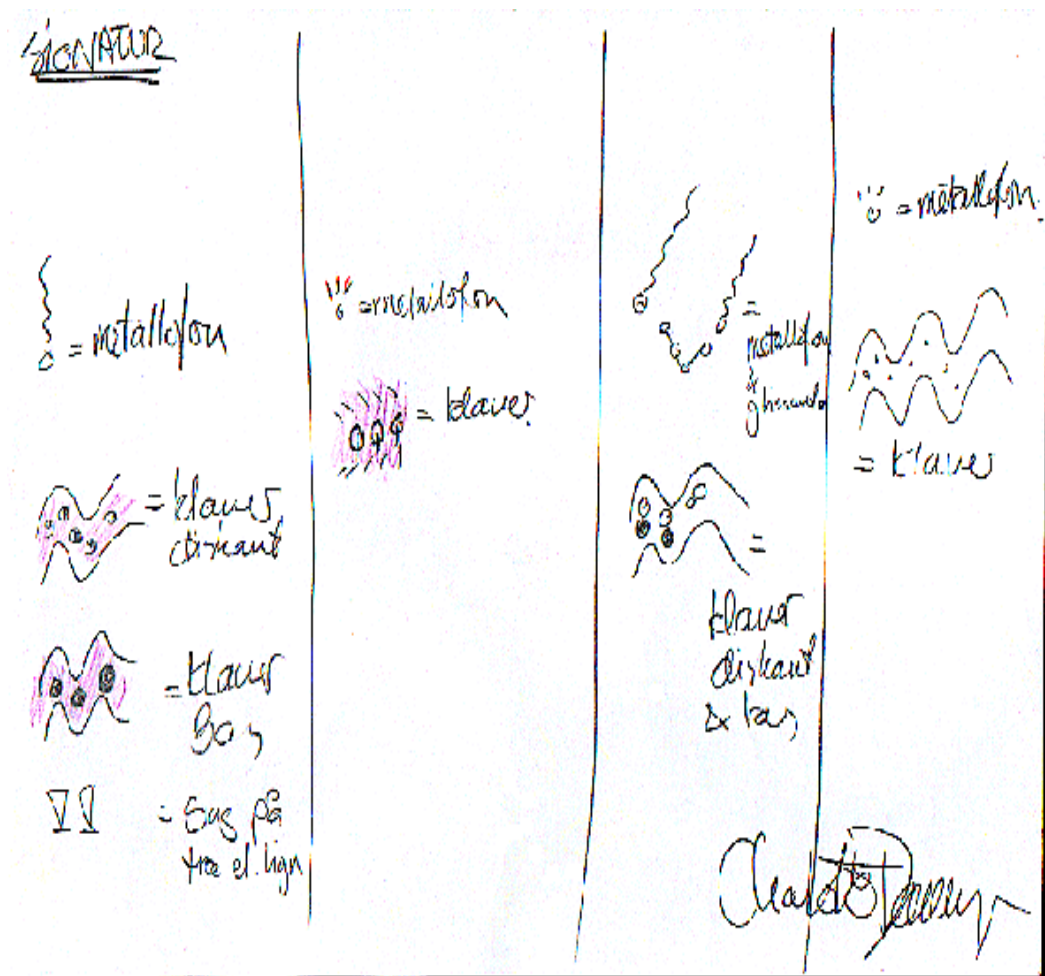 SIGNATUR
= metallofon
= klaver
diskant
= klaver
Bas
= Slag på
træ el. lign
= metallofon
= klaver
=
metallofon
glissando
=
klaver
diskant
& bas
= metallofon.
= klaver